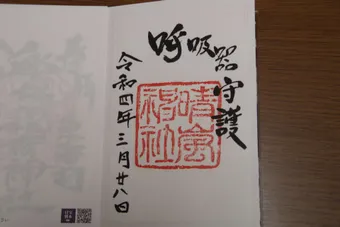 呼吸器守護
晴嵐
神社
令和四年三月廿八日